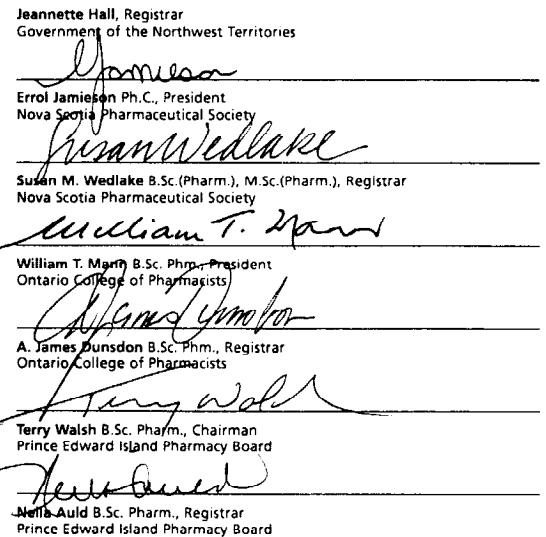 Jeannette Hall, Registrar
Government of the Northwest Territories
Jamieson
Errol Jamieson Ph.C., President
Nova Scotia Pharmaceutical Society
Susan Wedlake
Susan M. Wedlake B.Sc.(Pharm.), M.Sc.(Pharm.), Registrar
Nova Scotia Pharmaceutical Society
William T. Mann
William T. Mann B.Sc. Phm., President
Ontario College of Pharmacists
James Dunsdon
A. James Dunsdon B.Sc. Phm., Registrar
Ontario College of Pharmacists
Terry Walsh
Terry Walsh B.Sc. Pharm., Chairman
Prince Edward Island Pharmacy Board
Neila Auld
Neila Auld B.Sc. Pharm., Registrar
Prince Edward Island Pharmacy Board